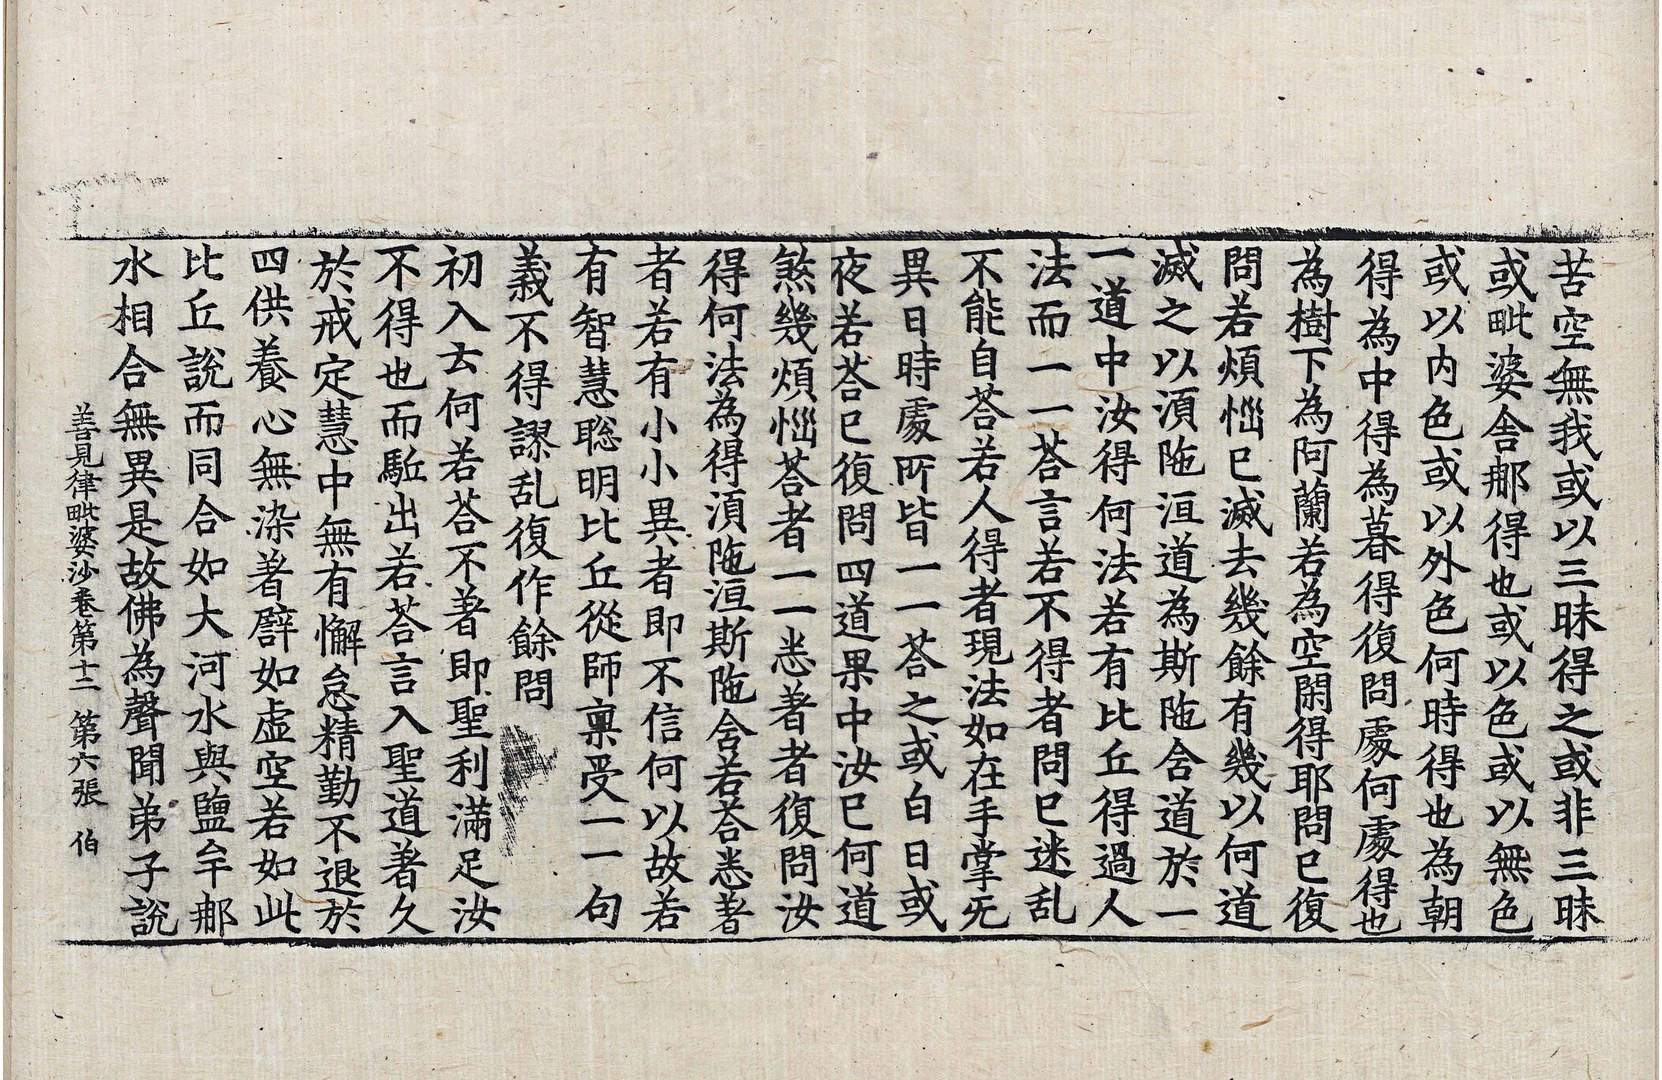 苦空無我或以三昧得之或非三昧
或毗婆舍那得也或以色或以無色
或以内色或以外色何時得也為朝
得為中得為暮得復問處何處得也
為樹下為阿蘭若為空閑得耶問已復
問若煩惱已滅去幾餘有幾以何道
滅之以湏陁洹道為斯陁舍道於一
一道中汝得何法若有比丘得過人
法而一一荅言若不得者問已迷乱
不能自荅若人得者現法如在手掌无
異日時處所皆一一荅之或白日或
夜若荅已復問四道果中汝已何道
煞幾煩惱荅者一一悉著者復問汝
得何法為得湏陁洹斯陁舍若荅悉著
者若有小小異者即不信何以故若
有智慧聡明比丘從師稟受一一句
義不得謬乱復作餘問
初入去何若荅不著即聖利滿足汝
不得也而駈出若荅言入聖道著久
於戒定慧中無有懈怠精勤不退於
四供養心無染著譬如虛空若如此
比丘說而同合如大河水與鹽牟郍
水相合無異是故佛為聲聞弟子說
善見律毗婆沙卷第十二 第六張 伯